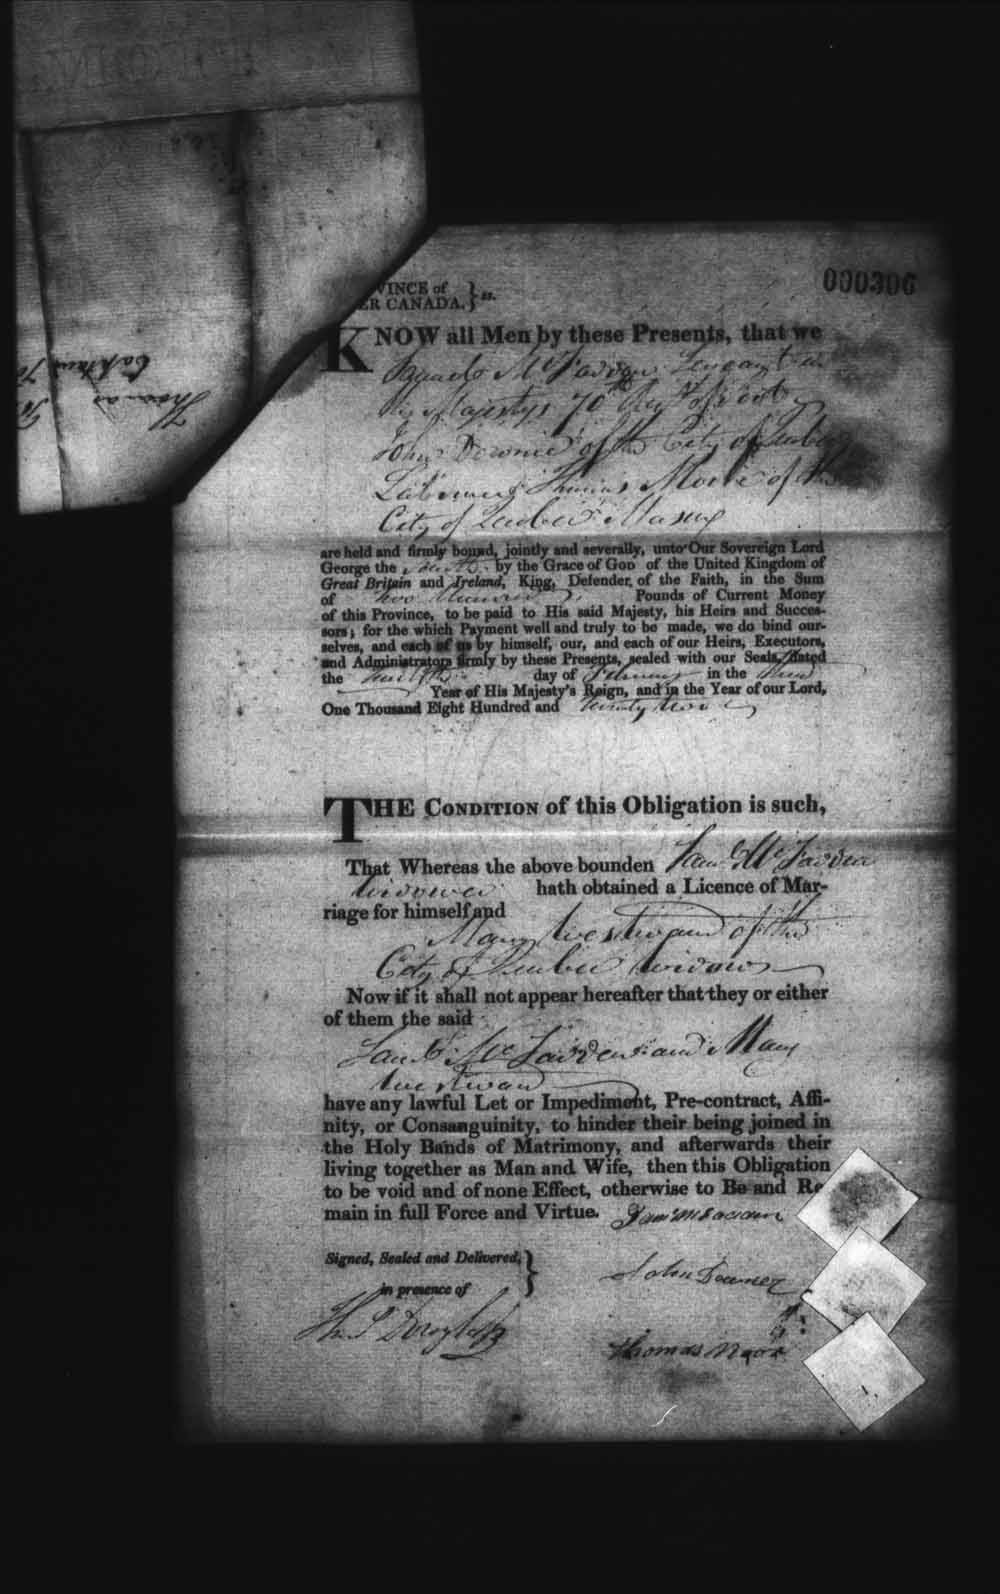 000306
VINCE of
ER CANADA. } ss.
KNOW all Men by these Presents, that we
McFadden Sergeant in
His Majestys 70th Regt of Foot
John Downie of the City of Quebec
Labourer & Thomas Moore of the
City of Quebec Mason
are held and firmly bound, jointly and severally, unto Our Sovereign Lord
George the fourth by the Grace of God of the United Kingdom of
Great Britain and Ireland, King, Defender of the Faith, in the Sum
of two hundred Pounds of Current Money
of this Province, to be paid to His said Majesty, his Heirs and Succes-
sors; for the which Payment well and truly to be made, we do bind our-
selves, and each of us by himself, our, and each of our Heirs, Executors,
and Administrators firmly by these Presents, sealed with our Seals, dated
the twelfth day of February in the third
Year of His Majesty's Reign, and in the Year of our Lord,
One Thousand Eight Hundred and twenty two
THE CONDITION of this Obligation is such,
That Whereas the above bounden McFadden
widower hath obtained a Licence of Mar-
riage for himself and
Mary of the
City of Quebec widow
Now if it shall not appear hereafter that they or either
of them the said
McFadden and Mary
have any lawful Let or Impediment, Pre-contract, Affi-
nity, or Consanguinity, to hinder their being joined in
the Holy Bands of Matrimony, and afterwards their
living together as Man and Wife, then this Obligation
to be void and of none Effect, otherwise to Be and Re
main in full Force and Virtue.
Signed, Sealed and Delivered, }
in presence of
John Downey
Thomas Moor